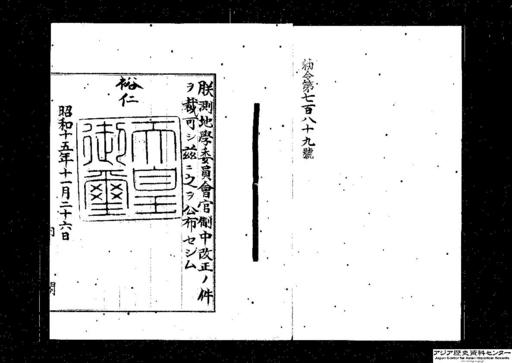 勅令第七百八十九號
朕測地學委員會官制中改正ノ件
ヲ裁可シ茲ニ之ヲ公布セシム
裕仁
天皇
御璽
昭和十五年十一月二十六日
内閣
アジア歴史資料センター
Japan Center for Asian Historical Records